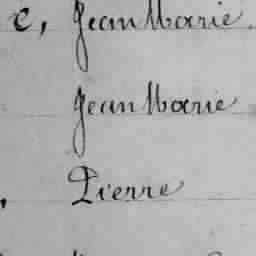 e, Jean Marie.
Jean Marie
, Pierre